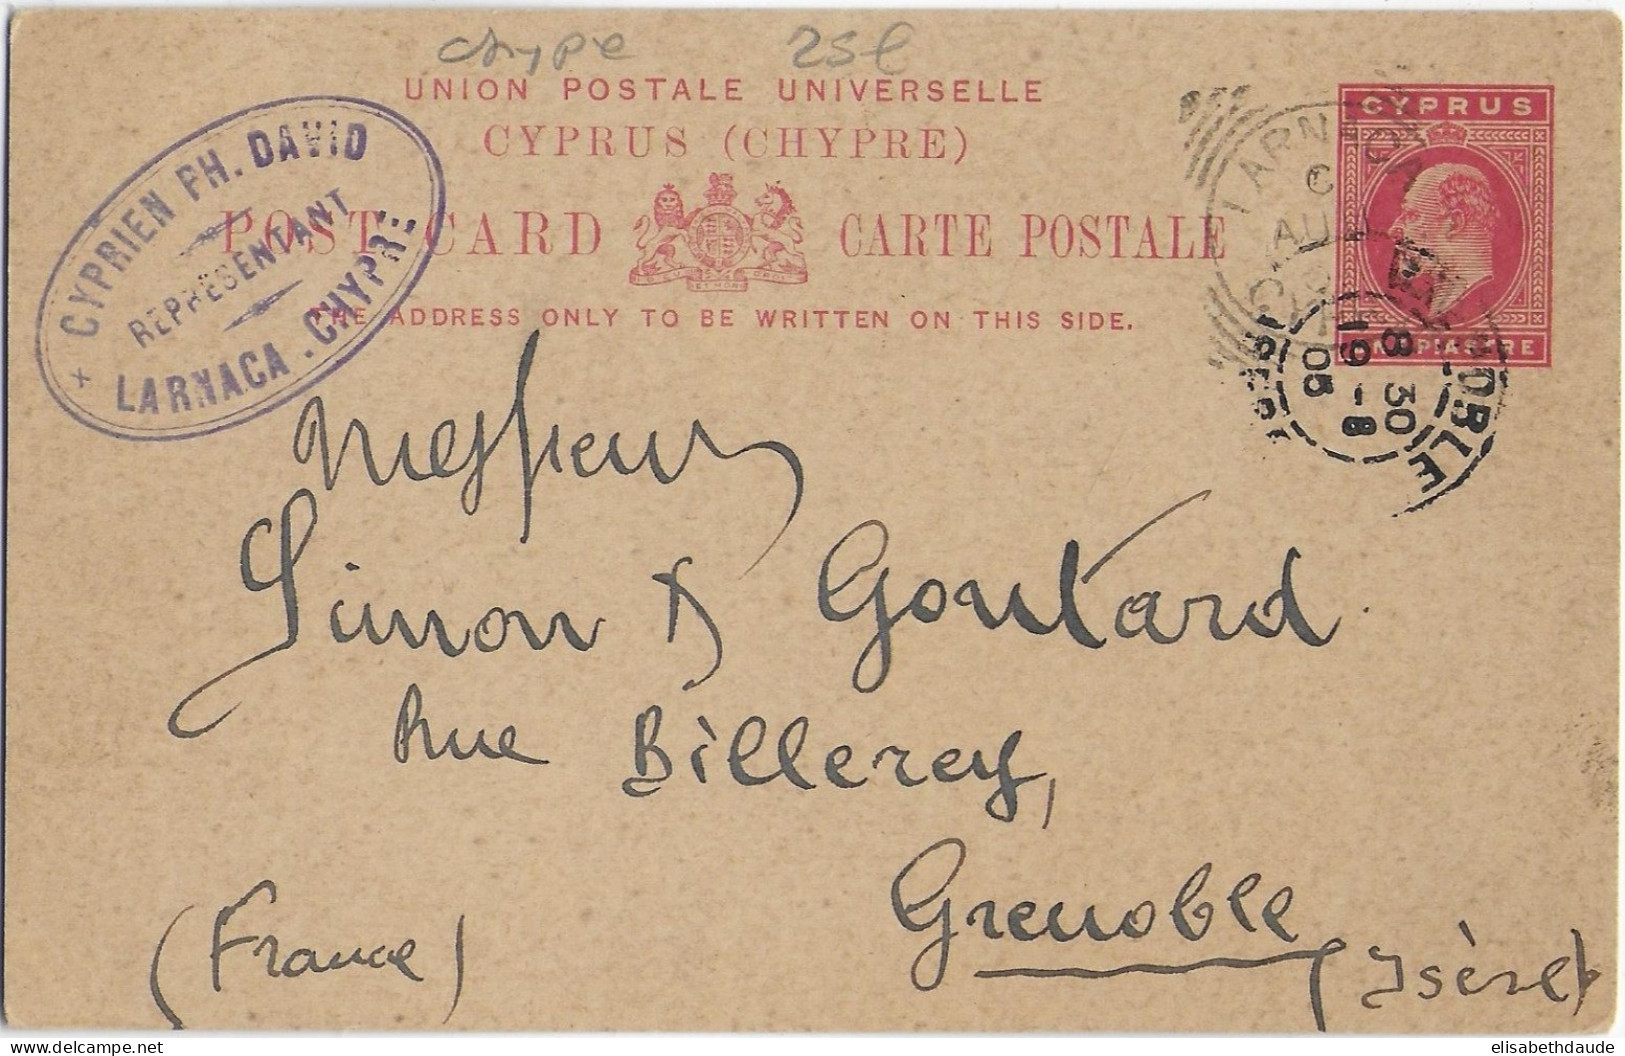 chype 25f
UNION POSTALE UNIVERSELLE
CYPRUS (CHYPRE)
POST CARD CARTE POSTALE
THE ADDRESS ONLY TO BE WRITTEN ON THIS SIDE.
CYPRIEN PH. DAVID
REPRÉSENTANT
LARNACA . CHYPRE
CYPRUS
ONE PIASTRE
LARNACA
C
AU
8 30
19 - 8
05
Messieurs
Simon & Goutard
Rue Billerey,
Grenoble
(Isère)
(France)
elisabethdaude